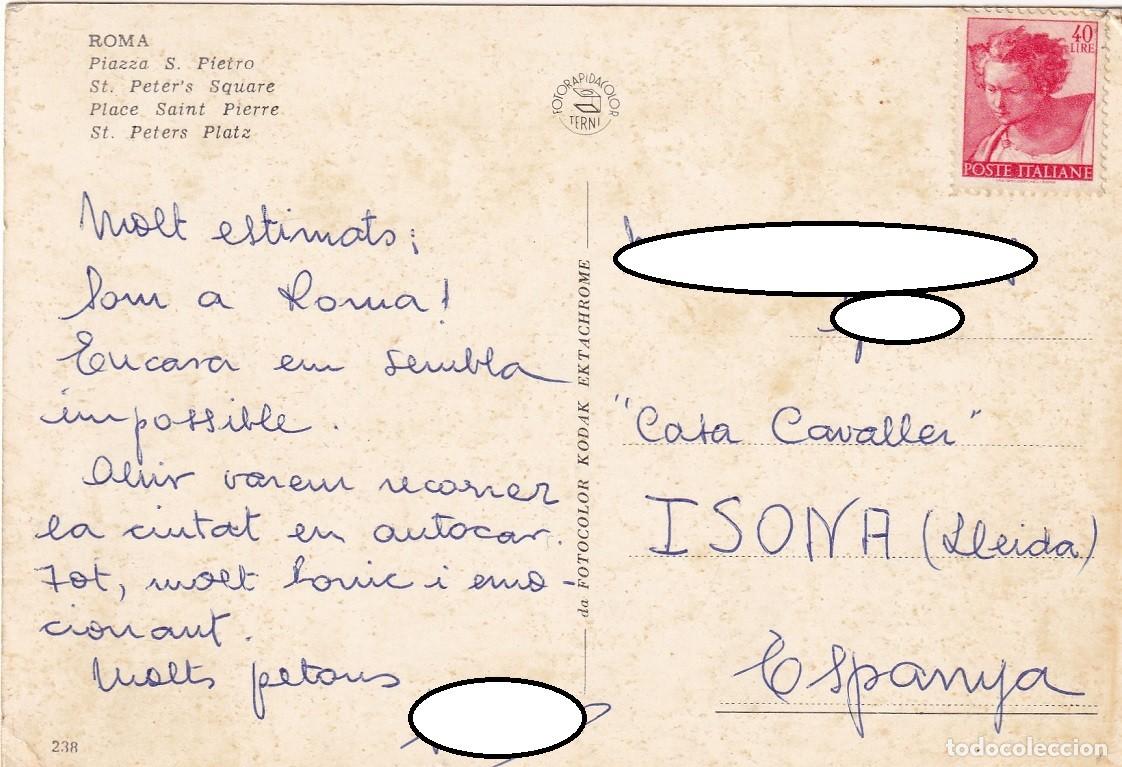 ROMA
Piazza S. Pietro
St. Peter's Square
Place Saint Pierre
St. Peters Platz
FOTORAPIDACOLOR
TERNI
40
LIRE
POSTE ITALIANE
Molt estimats;
Som a Roma!
Encara em sembla
impossible.
Ahir varem recorrer
la ciutat en autocar.
Tot, molt bonic i emo-
cionant.
Molts petons
238
da FOTOCOLOR KODAK EKTACHROME
"Casa Cavaller"
ISONA (Lleida)
Espanya
todocoleccion